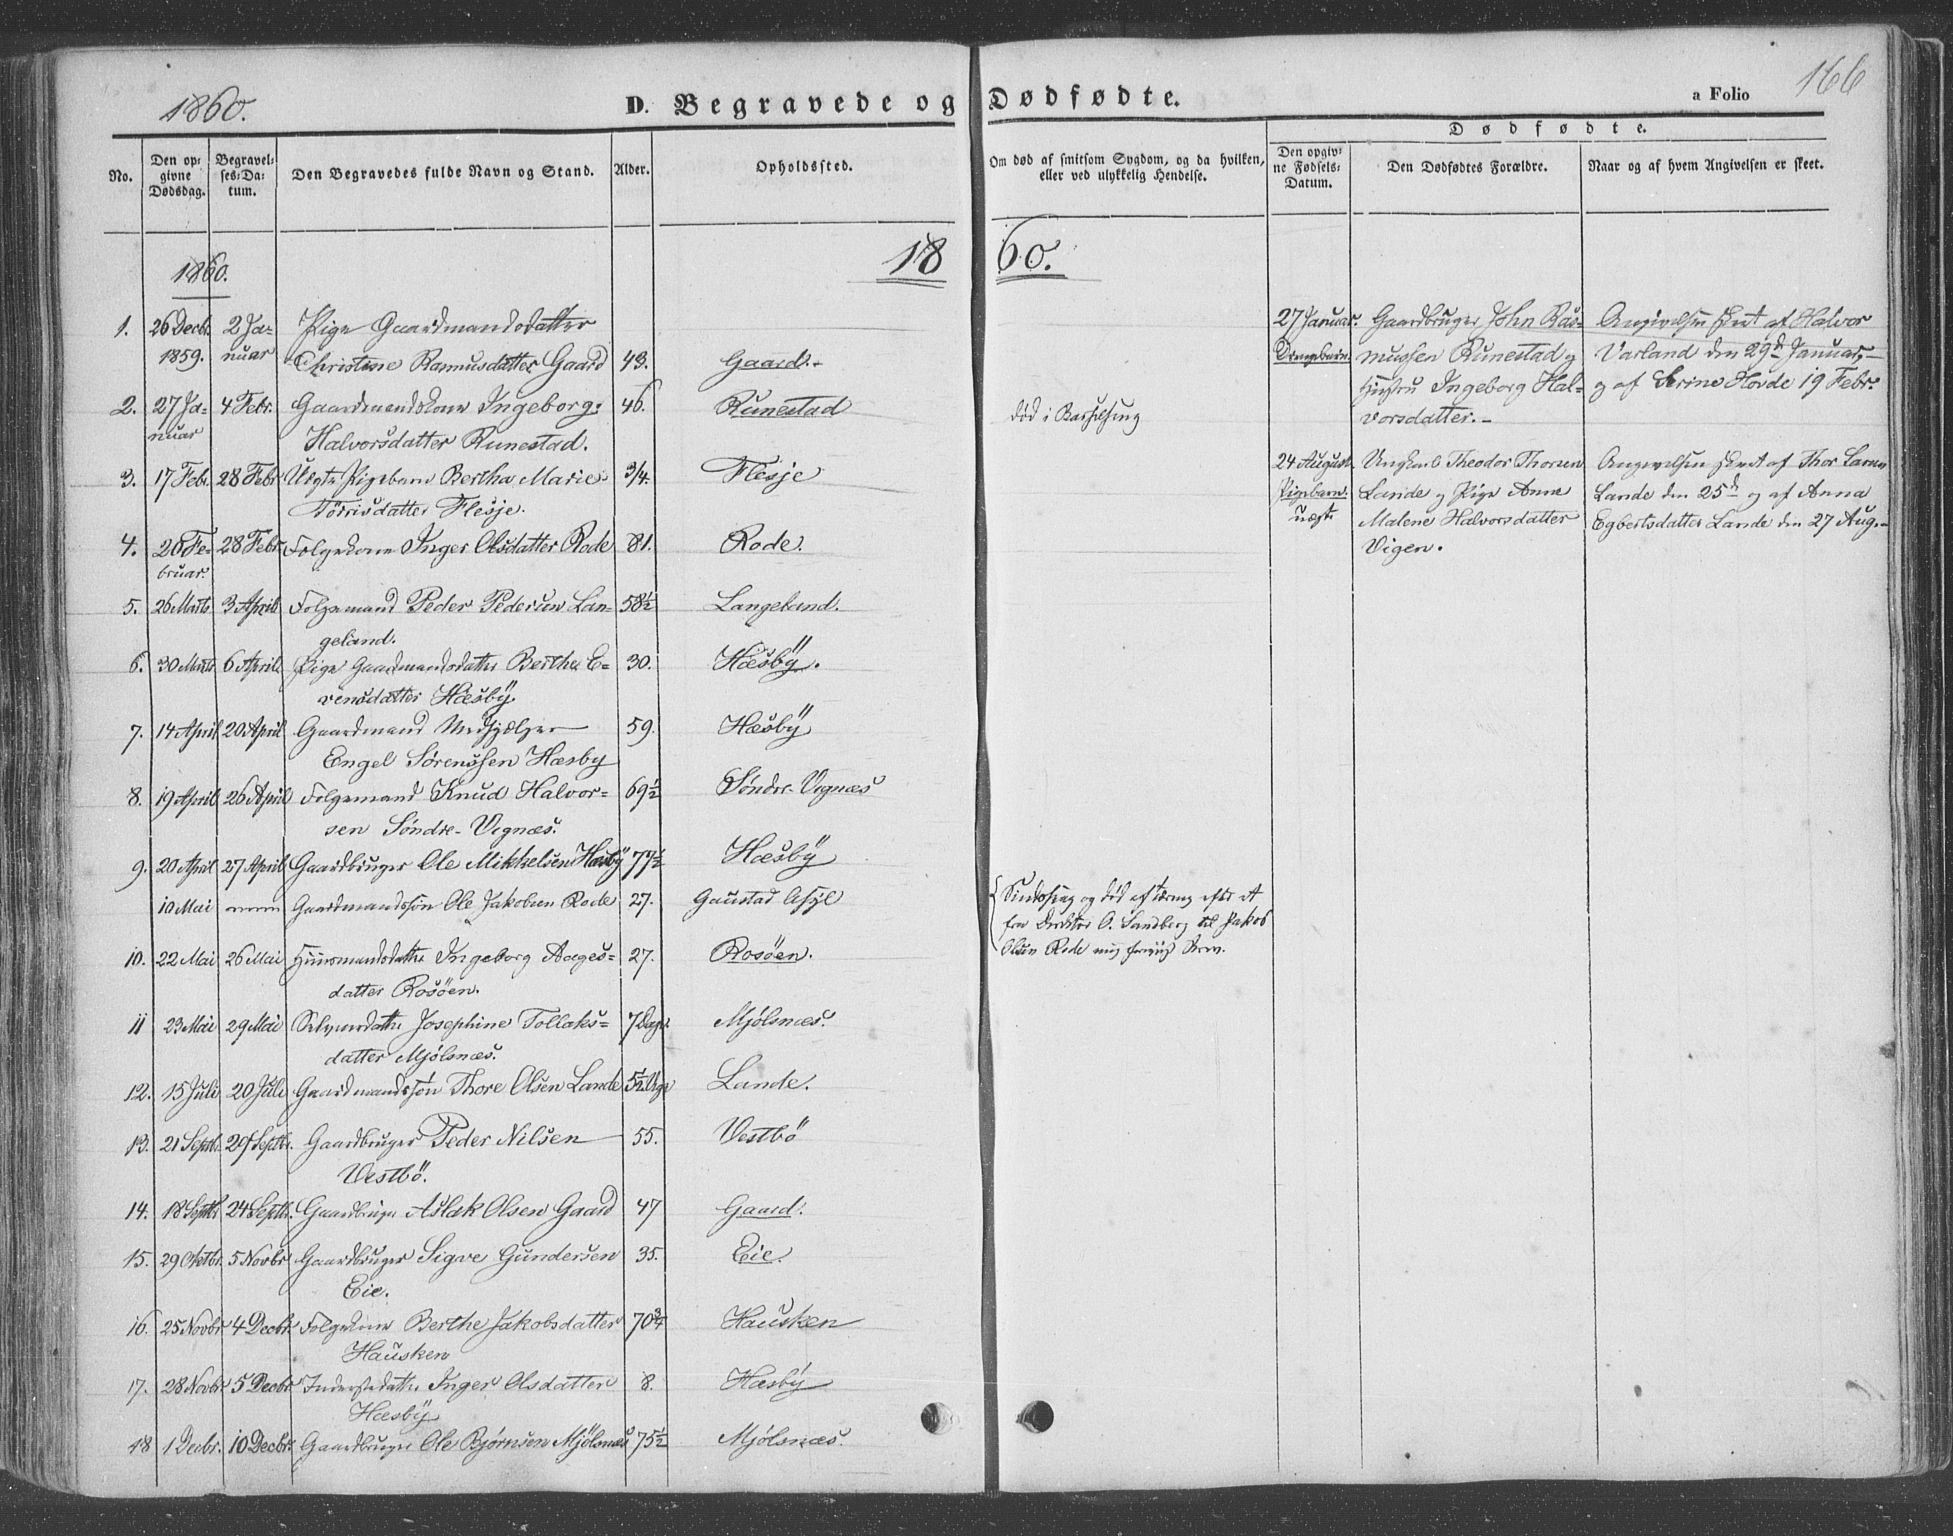 1860.
D. Begravede og Dødfødte.
a Folio 166
No.
Den opgivne Dødsdag.
Begravelses-Datum.
Den Begravedes fulde Navn og Stand.
Alder.
Opholdssted.
Om død af smitsom Sygdom, og da hvilken, eller ved ulykkelig Hendelse.
Dødfødte.
Den opgivne Fødsels-Datum.
Den Dødfødtes Forældre.
Naar og af hvem Angivelsen er skeet.
1860.
1860.
1. 26 Decbr. 2 Ja- Pige Gaardmandsdatter
1859. nuar Christine Rasmusdatter Gaard 43. Gaard.
2. 27 Ja- 4 Febr. Gaardmandskone Ingeborg 46. Runestad død i Barselseng
nuar Halvorsdatter Runestad.
3. 17 Febr. 28 Febr. Uægte Pigebarn Bertha Marie 3/4. Flesje
Tørrisdatter Flesje.
4. 20 Fe- 28 Febr. Folgekone Inger Olsdatter Rode 81. Rode.
bruar.
5. 26 Marts 3 April Folgemand Peder Pedersen Lan- 58½ Langeland.
geland.
6. 30 Marts 6 April Pige Gaardmandsdatter Bertha E- 30. Hæsbÿ.
vensdatter Hæsbÿ
7. 14 April 20 April Gaardmand Medhjælper 59. Hæsbÿ
Engel Sørenssen Hæsby
8. 19 April 26 April Folgemand Knud Halvor- 69½ Søndre-Vignæs
sen Søndre-Vignæs.
9. 20 April 27 April Gaardbruger Ole Mikkelsen Hæsbÿ 77½ Hæsbÿ
10 Mai Gaardmandssøn Ole Jakobsen Rode 27. Gaustad Asyl
Sindssyg og død af tæring efter et
fra Direktør O. Sandberg til Jakob
Olsen Rode mig foreviist Brev.
10. 22 Mai 26 Mai Huusmandsdatter Ingeborg Aages- 27. Rosöen.
datter Rosöen.
11 23 Mai 29 Mai Josephine Tollaks- 7 Dage Mjölsnæs.
datter Mjölsnæs.
12. 15 Juli 20 Juli Gaardmandssøn Thore Olsen Lande 5½ Uge Lande.
13. 21 Septbr. 29 Septbr. Gaardbruger Peder Nilsen 55. Vestbö
Vestbö.
14. 18 Septbr. 24 Septbr. Gaardbruger Aslak Olsen Gaard 47 Gaard.
15. 29 Oktbr. 5 Novbr. Gaardbruger Sigve Gundersen 35. Eie.
Eie.
16. 25 Novbr. 4 Decbr. Folgekone Berthe Jakobsdatter 70¾ Hausken
Hausken
17. 28 Novbr. 5 Decbr. Inderstedatter Inger Olsdatter 8. Hæsbÿ
Hæsbÿ
18 1 Decbr. 10 Decbr. Gaardbruger Ole Bjørnsen Mjölsnæs 75½ Mjölsnæs.
27 Januar. Gaardbruger John Ras- Angivelsen skeet af Halvor
Drengebarn. mussen Runestad og Varland den 29de Januar,
Hustru Ingeborg Hal- og af Serine Hovde 19 Febr.
vorsdatter.
24 August. Ungkarl Theodor Thorsen Angivelsen skeet af Thor Larsen
Pigebarn. Lande og Pige Anne Lande den 25de og af Anna
uægte Malene Halvorsdatter Egbertsdatter Lande den 27 Aug.
Vigen.